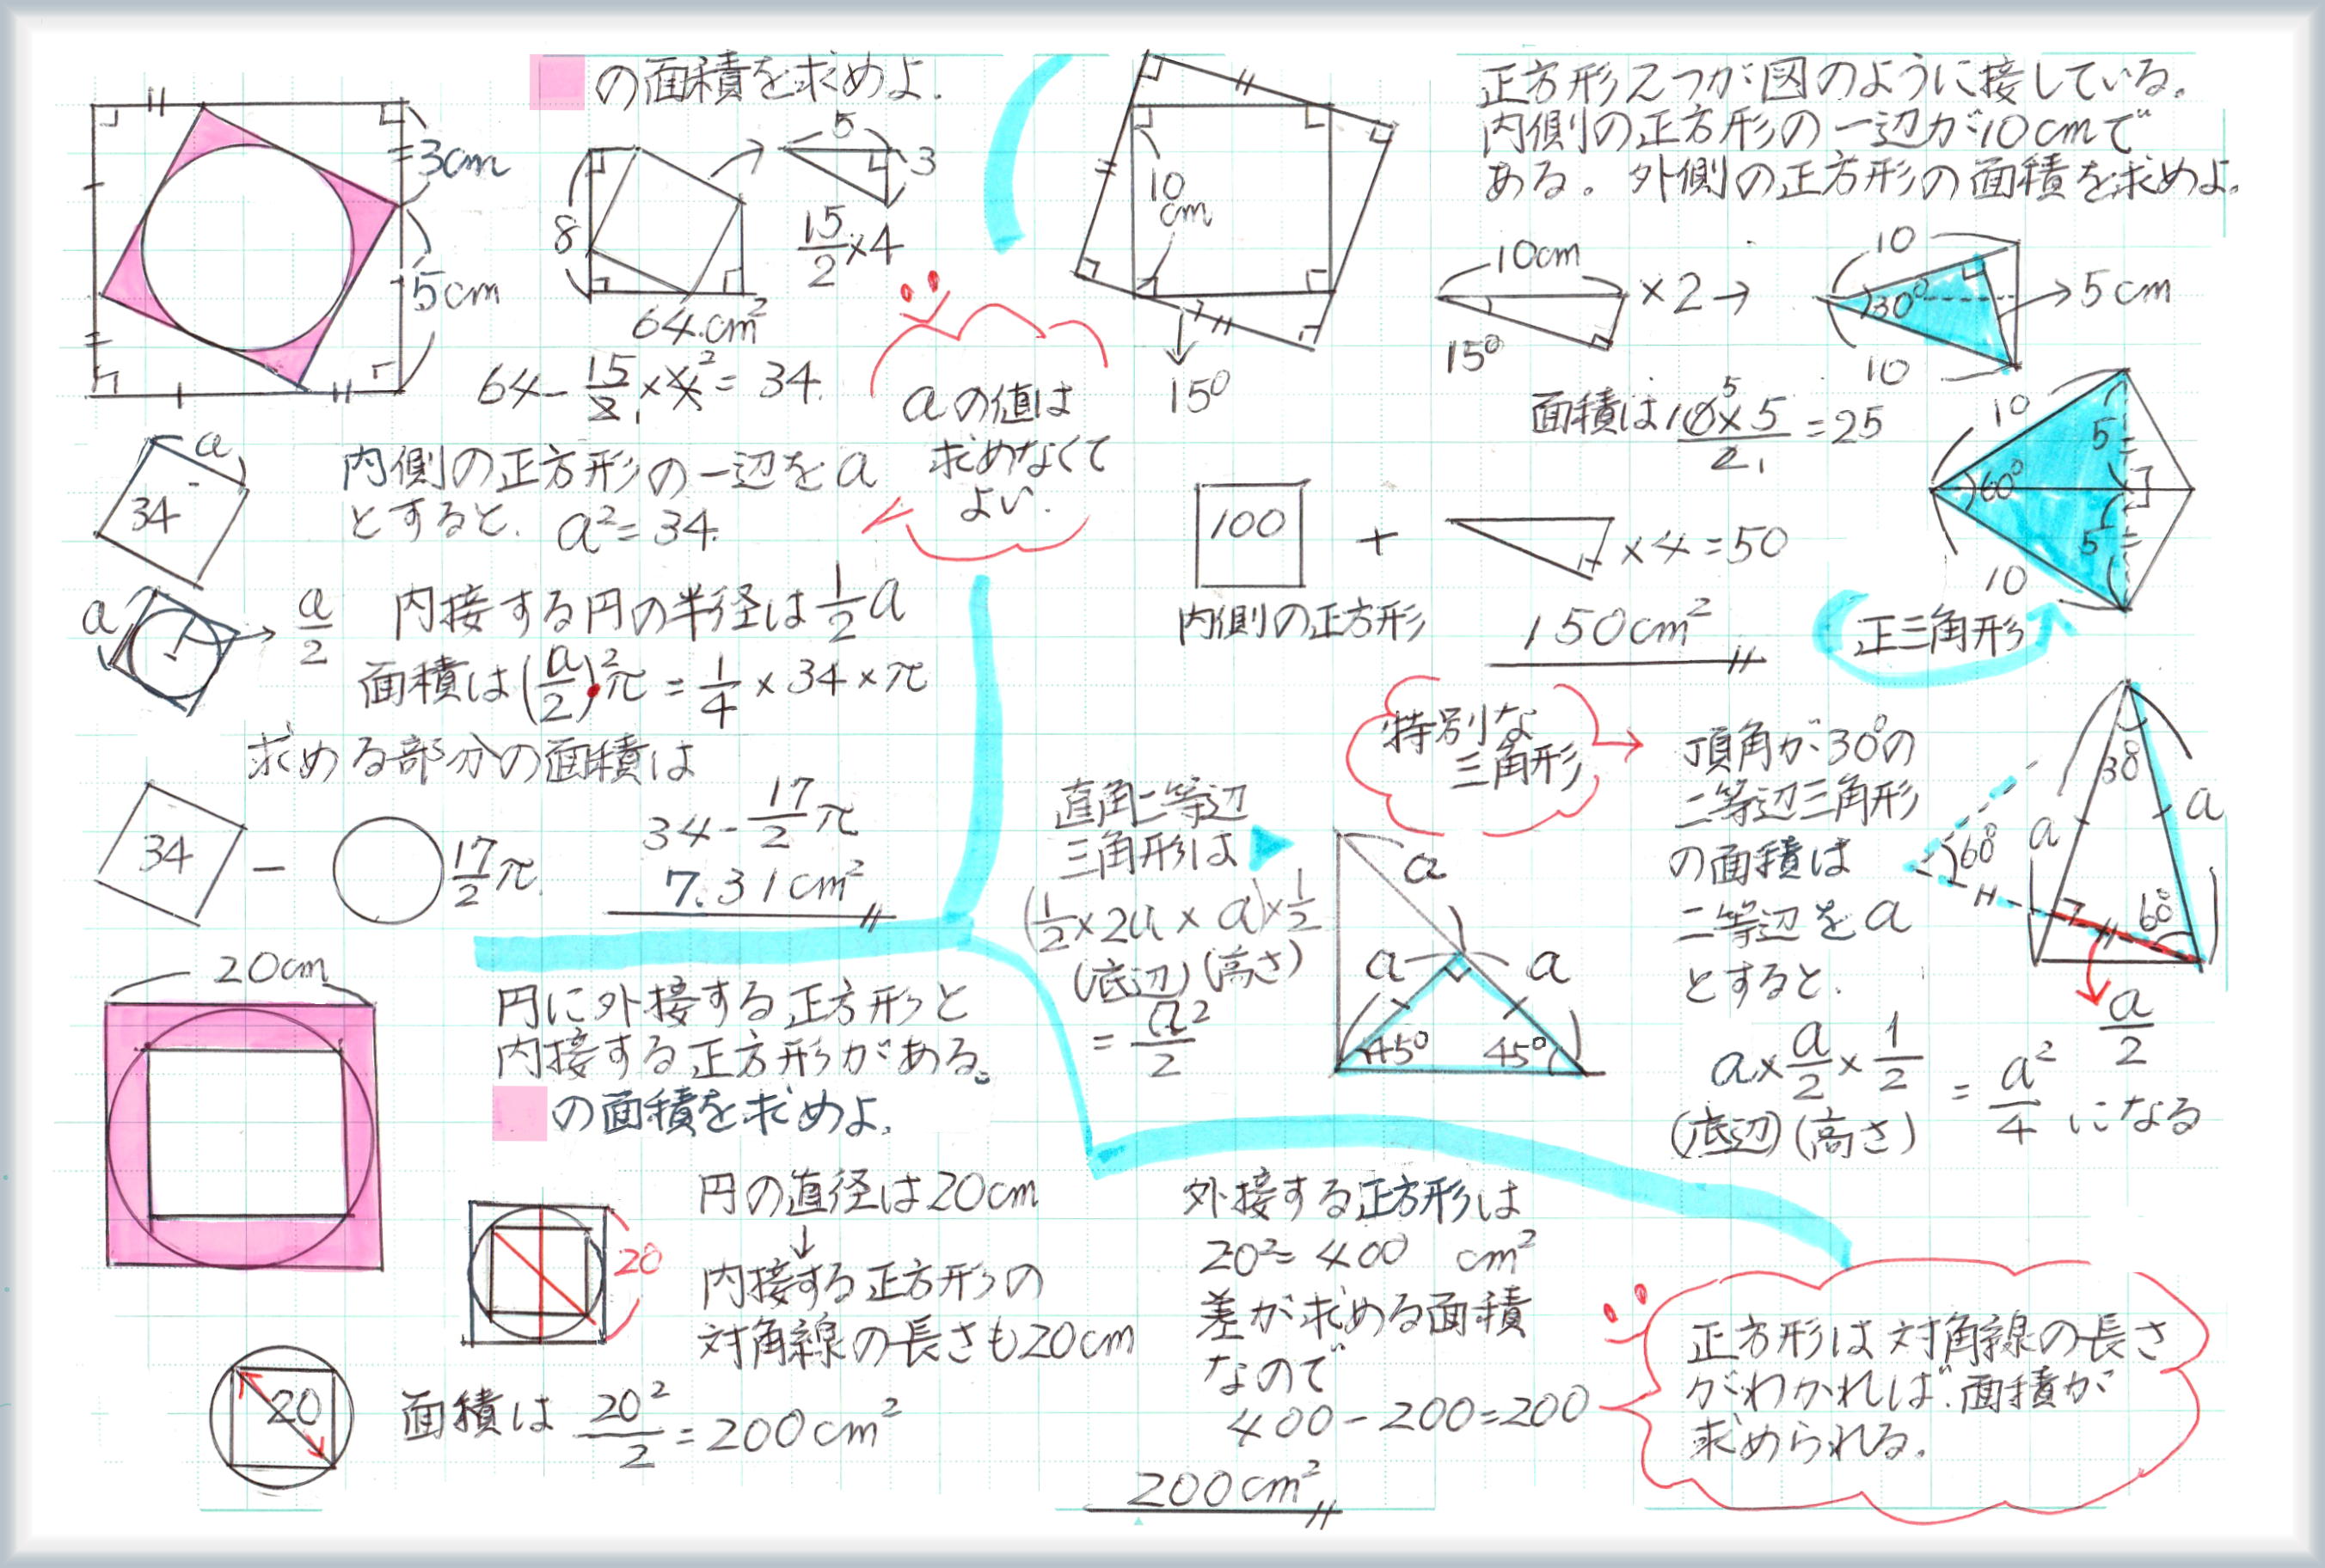 の面積を求めよ.
3cm
5cm
8
64.cm²
5
3
15/2×4
64-15/2×4²=34.
a
34
内側の正方形の一辺をa
とすると. a²=34.
aの値は
求めなくて
よい.
a
a/2
内接する円の半径は1/2a
面積は(a/2)²π=1/4×34×π
求める部分の面積は
34
-
17/2π.
34-17/2π
7.31cm²
正方形2つが図のように接している.
内側の正方形の一辺が10cmで
ある. 外側の正方形の面積を求めよ.
10
cm
15°
10cm
15°
×2→
10
30°
10
5cm
面積は10×5/2=25
5
1
10
60°
10
5
5
正三角形
100
+
×4=50
内側の正方形
150cm²
特別な
三角形
直角二等辺
三角形は
(1/2×2a×a)×1/2
(底辺)(高さ)
=a²/2
a
a
a
45°
45°
頂角が30°の
二等辺三角形
の面積は
二等辺をa
とすると.
a×a/2×1/2=a²/4になる
(底辺)(高さ)
30
a
a
60
60°
a/2
20cm
円に外接する正方形と
内接する正方形がある。
の面積を求めよ.
20
円の直径は20cm
↓
内接する正方形の
対角線の長さも20cm
20
面積は20²/2=200cm²
外接する正方形は
20²=400 cm²
差が求める面積
なので
400-200=200
200cm²
正方形は対角線の長さ
がわかれば.面積が
求められる.